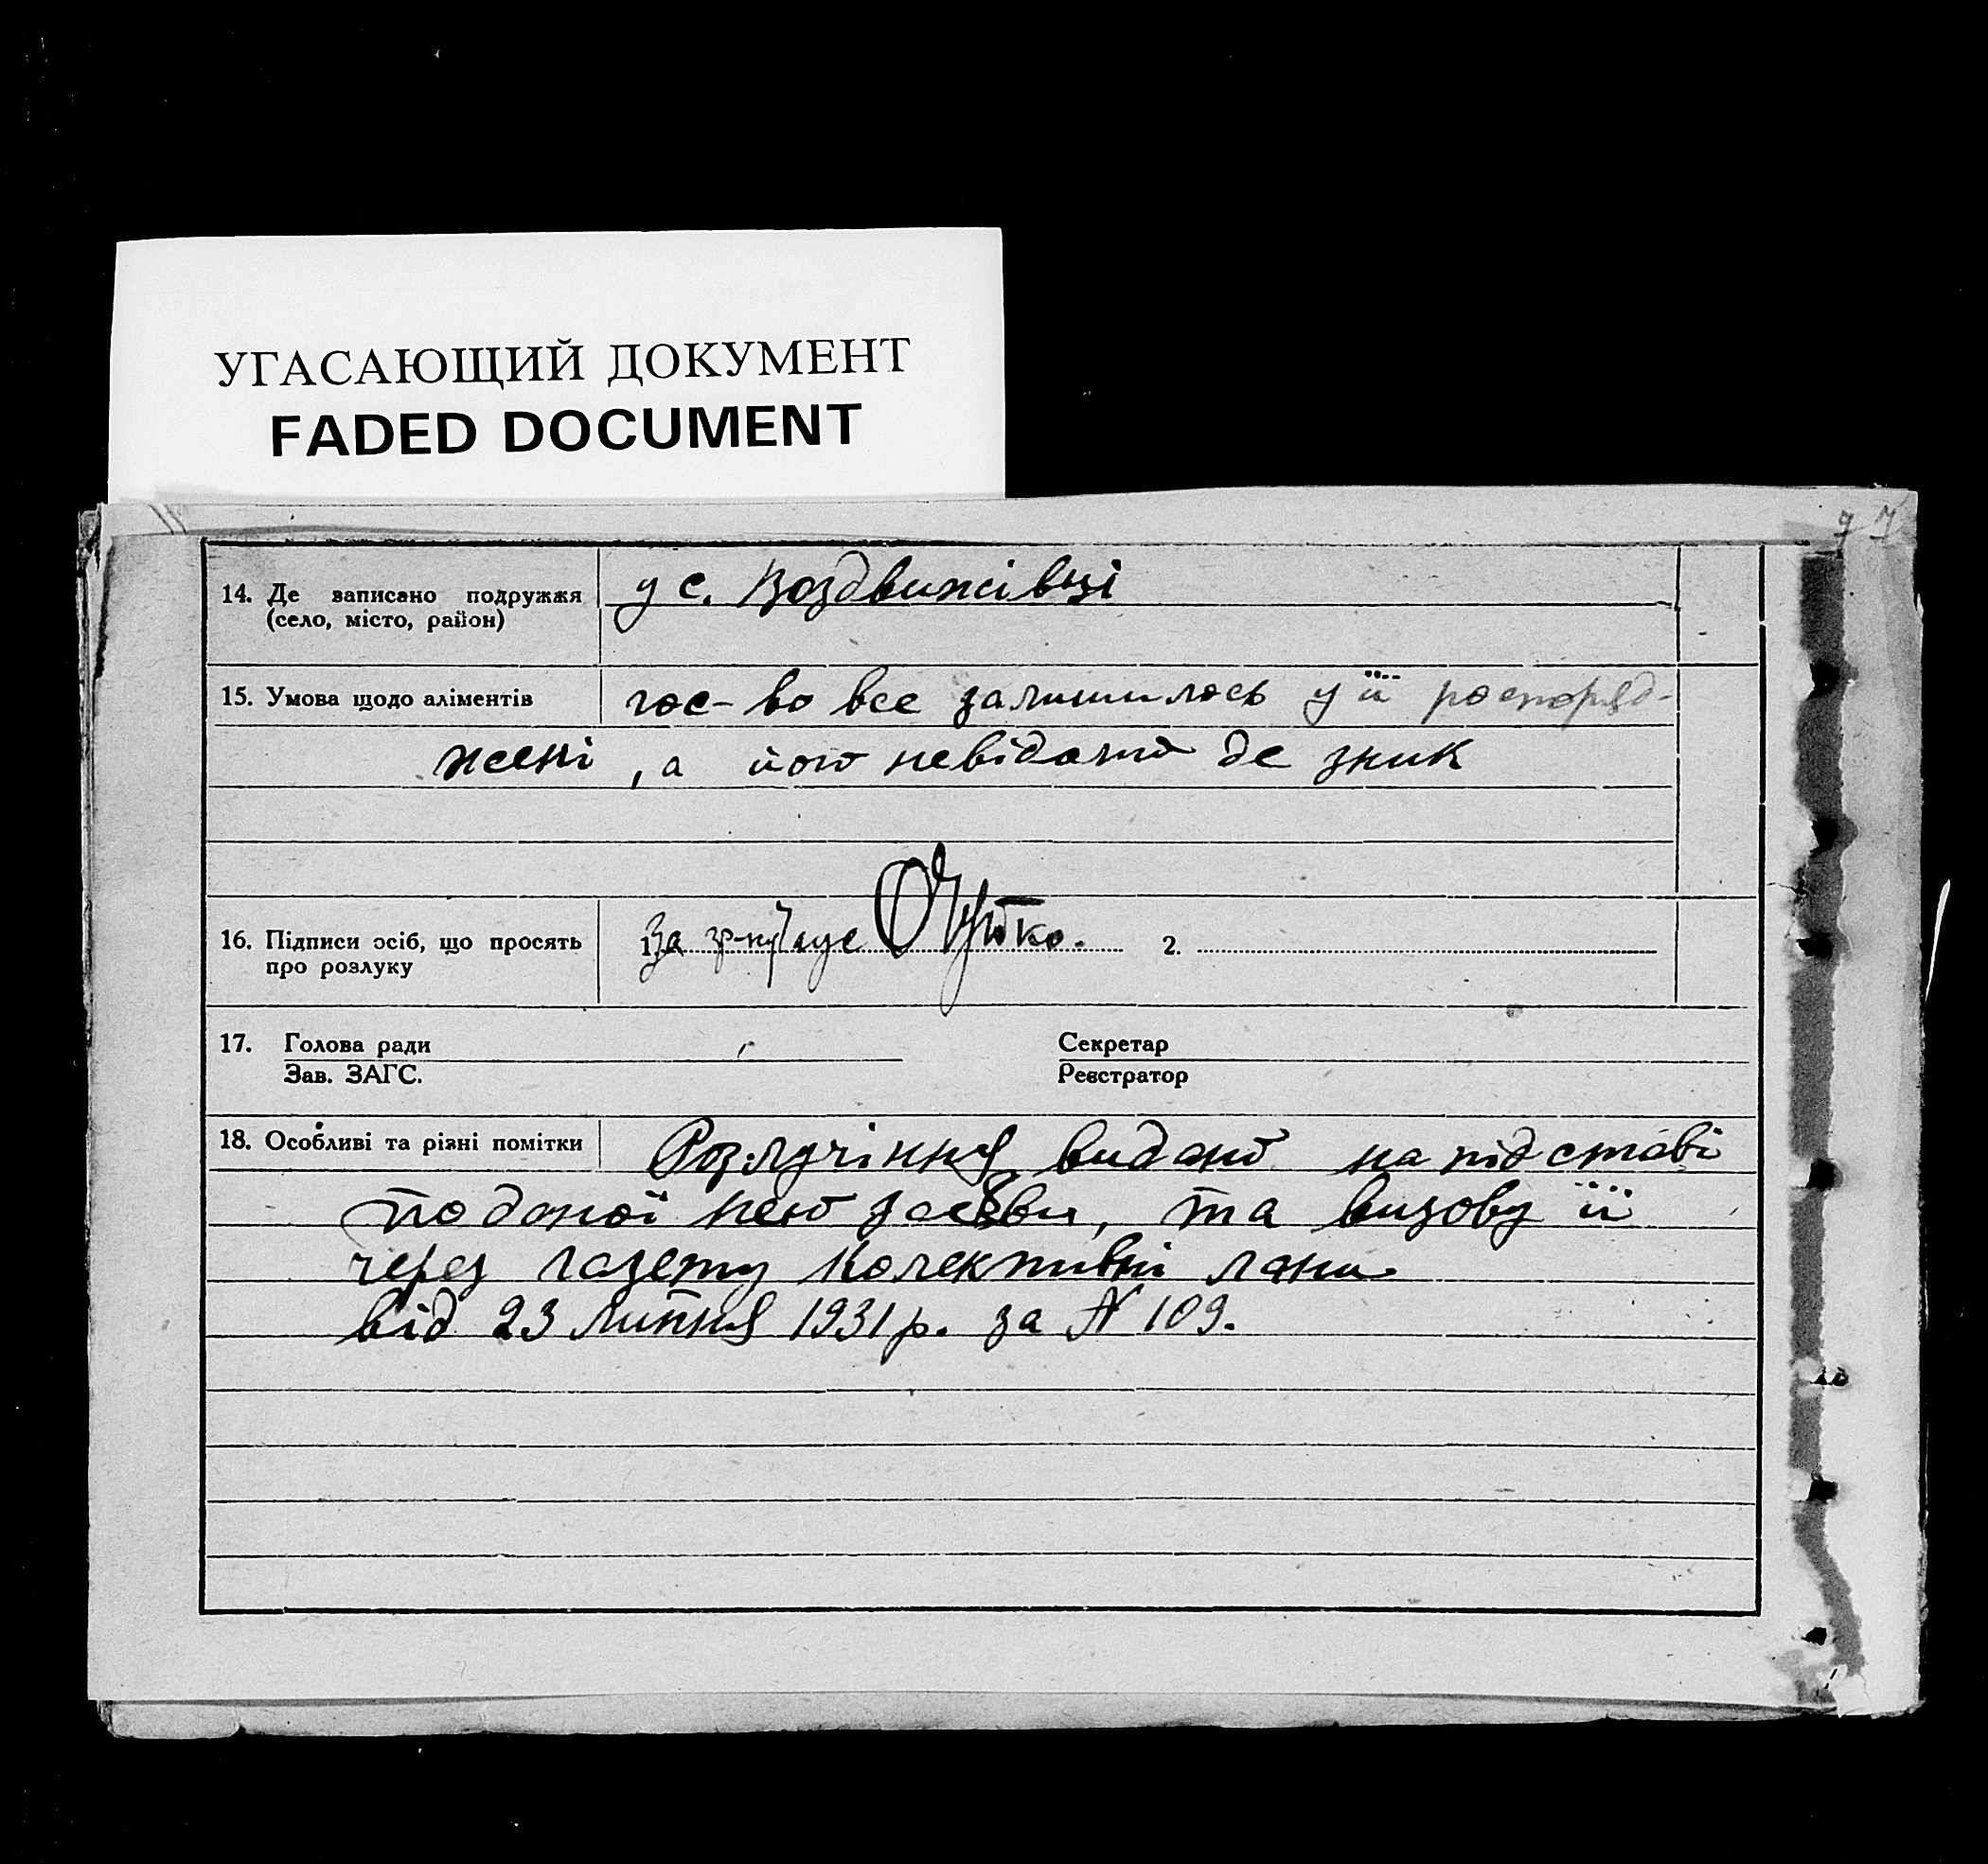 УГАСАЮЩИЙ ДОКУМЕНТ
FADED DOCUMENT
14. Де записано подружжя у с. Воздвижівці
(село, місто, район)
15. Умова щодо аліментів гос-во все залишилось у її роспоряд-
жені, а його невідомо де зник
16. Підписи осіб, що просять 1. За 2.
про розлуку
17. Голова ради Секретар
Зав. ЗАГС. Реєстратор
18. Особливі та різні помітки Розлучіння видано на підставі
поданої нею заяви, та визову її
через газету Колективні лани
від 23 липня 1931 р. за № 109.